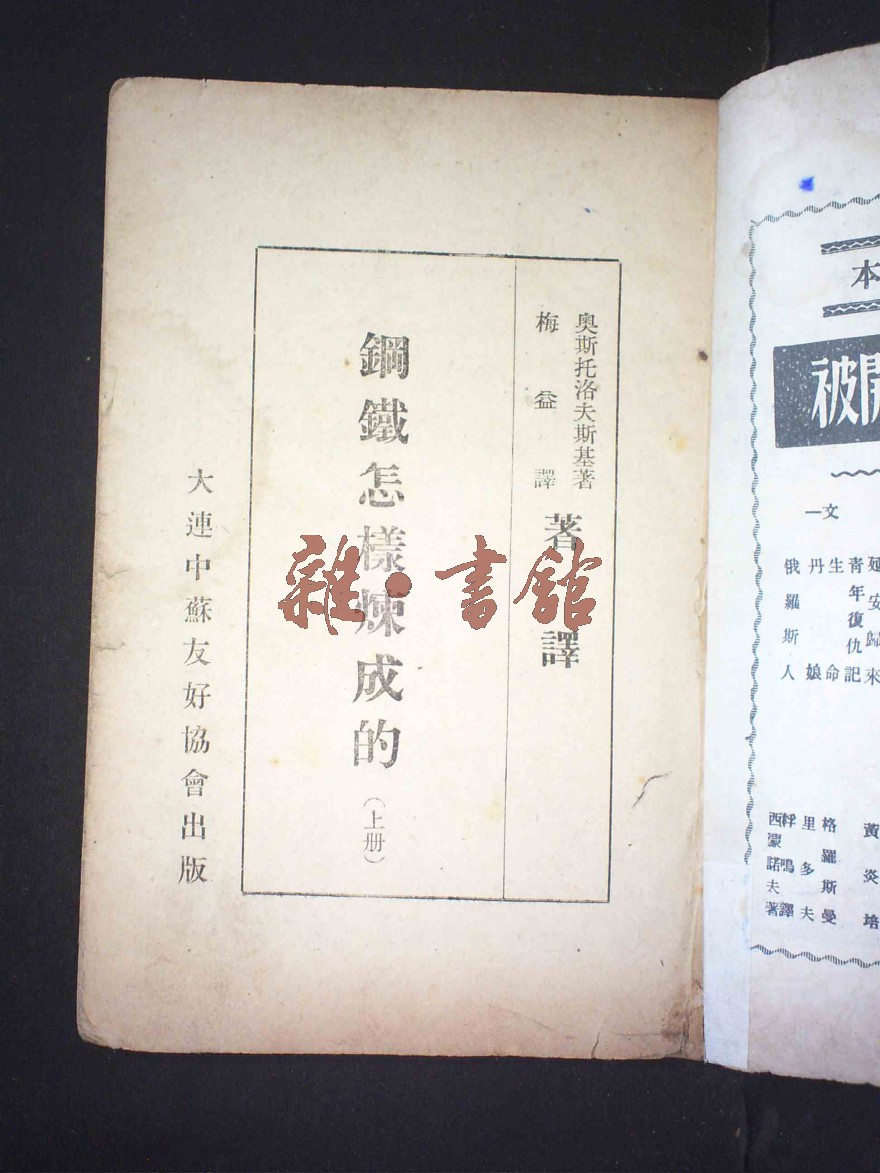 奧斯托洛夫斯基著
梅益譯
著譯
鋼鐵怎樣煉成的
（上册）
大連中蘇友好協會出版
雜·書館
本
被開
一文
延安歸來
青年復仇記
生命
丹娘
俄羅斯人
黃炎培
格羅斯曼
里多夫
西蒙諾夫著